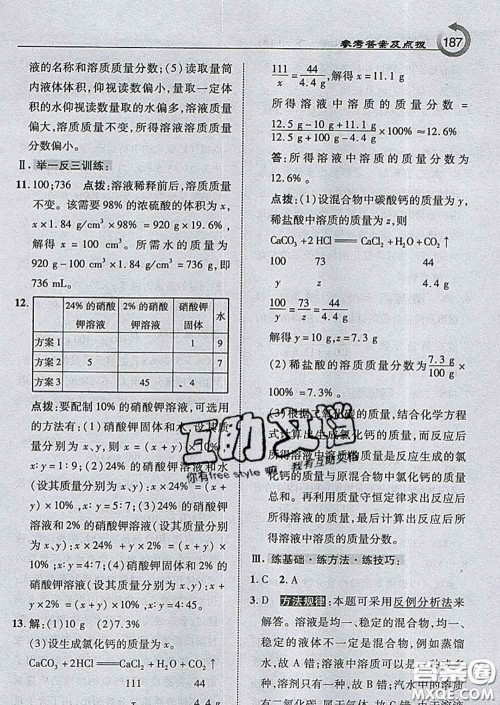 参考答案及点拨 187
液的名称和溶质质量分数;(5)读取量筒
内液体体积,仰视读数量偏大,俯视读数量
偏小,
Ⅱ. 举一反三训练:
11. 100;736 点拨:溶液稀释前后,溶质质量
不变。设该需要98%的浓硫酸的体积为x,
x×1.84 g/cm³×98%=920 g×19.6%,
解得x=100 cm³。所需水的质量为
920 g-100 cm³×1.84 g/cm³=736 g,即
736 mL。
12.
24%的硝酸钾溶液 2%的硝酸钾溶液 硝酸钾固体 水
方案1 1 9
方案2 5 7
方案3 45 4
点拨:要配制10%的硝酸钾溶液,可选用
的方法有:(1)硝酸钾固体和水(设其质
量分别为x、x),x=(x+y)×10%,
x∶y=1∶9;(2)24%的硝酸钾溶液和水
(设其质量分别为x、y),x×24%=(x+
y)×10%,x∶y=5∶7;(3)24%的硝酸钾
溶液和2%的硝酸钾溶液(设其质量分别
为x、y),x×24%+y×2%=(x+y)×
10%,x∶y=4∶7;(4)硝酸钾固体和2%的
硝酸钾溶液(设其质量分别为x、y),x+
y×2%=(x+y)×10%,x∶y=4∶45
13. 解:(1)10 g (2)7.3%
(3)设生成氯化钙的质量为x。
CaCO₃+2HCl═CaCl₂+H₂O+CO₂↑
111 44
x 4.4 g
111/x=44/4.4 g x=11.1 g
所得溶液中溶质的质量分数=
×100%≈
12.6%
答:所得溶液中溶质的质量分数为
12.6%。
点拨:(1)设混合物中碳酸钙的质量为y,
稀盐酸中溶质的质量为z,则
CaCO₃+2HCl═CaCl₂+H₂O+CO₂↑
100 73 44
y z 4.4 g
100/y=73/z=44/4.4 g
解得y=10 g,z=7.3 g
(2)稀盐酸的溶质质量分数为7.3 g/100 g×
100%=7.3%。
(3)根据二氧化碳的质量,结合化学方程
式计算出生成氯化钙的质量,而反应后所
得溶液中溶质的质量是反应生成的氯化
钙的质量与原混合物中氯化钙的质量的
总和。再利用质量守恒定律求出反应后
所得溶液的质量,从而计算出反应后所得
溶液中溶质的质量分数。
Ⅲ. 练基础·练方法·练技巧:
1. C 2. A
3. D 方法规律:本题可采用反例分析法来
解答。溶液是均一、稳定的混合物,均一、
稳定的液体不一定是溶液,例如蒸馏
水,故A错;溶液不一定是无色的,例如
溶液是蓝色的,故B错;汽水中的溶质
有二氧化碳,属于气体,故C错。由于溶液
互助文档
你有free style啊
我有互助文档
答案圈
MXQE.COM